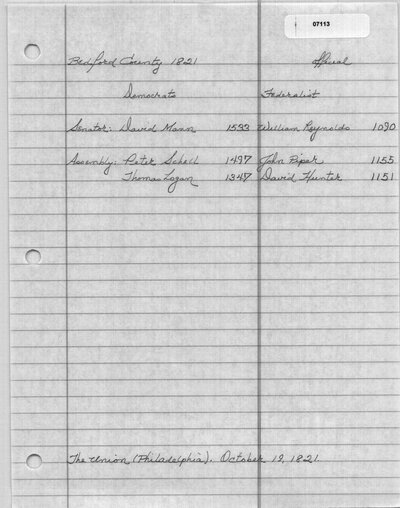 07113
Bedford County 1821 official
Democrats Federalist
Senator: David Mann 1533 William Reynolds 1090
Assembly: Peter Schell 1497 John Piper 1155
Thomas Logan 1347 David Hunter 1151
The Union (Philadelphia). October 19, 1821.